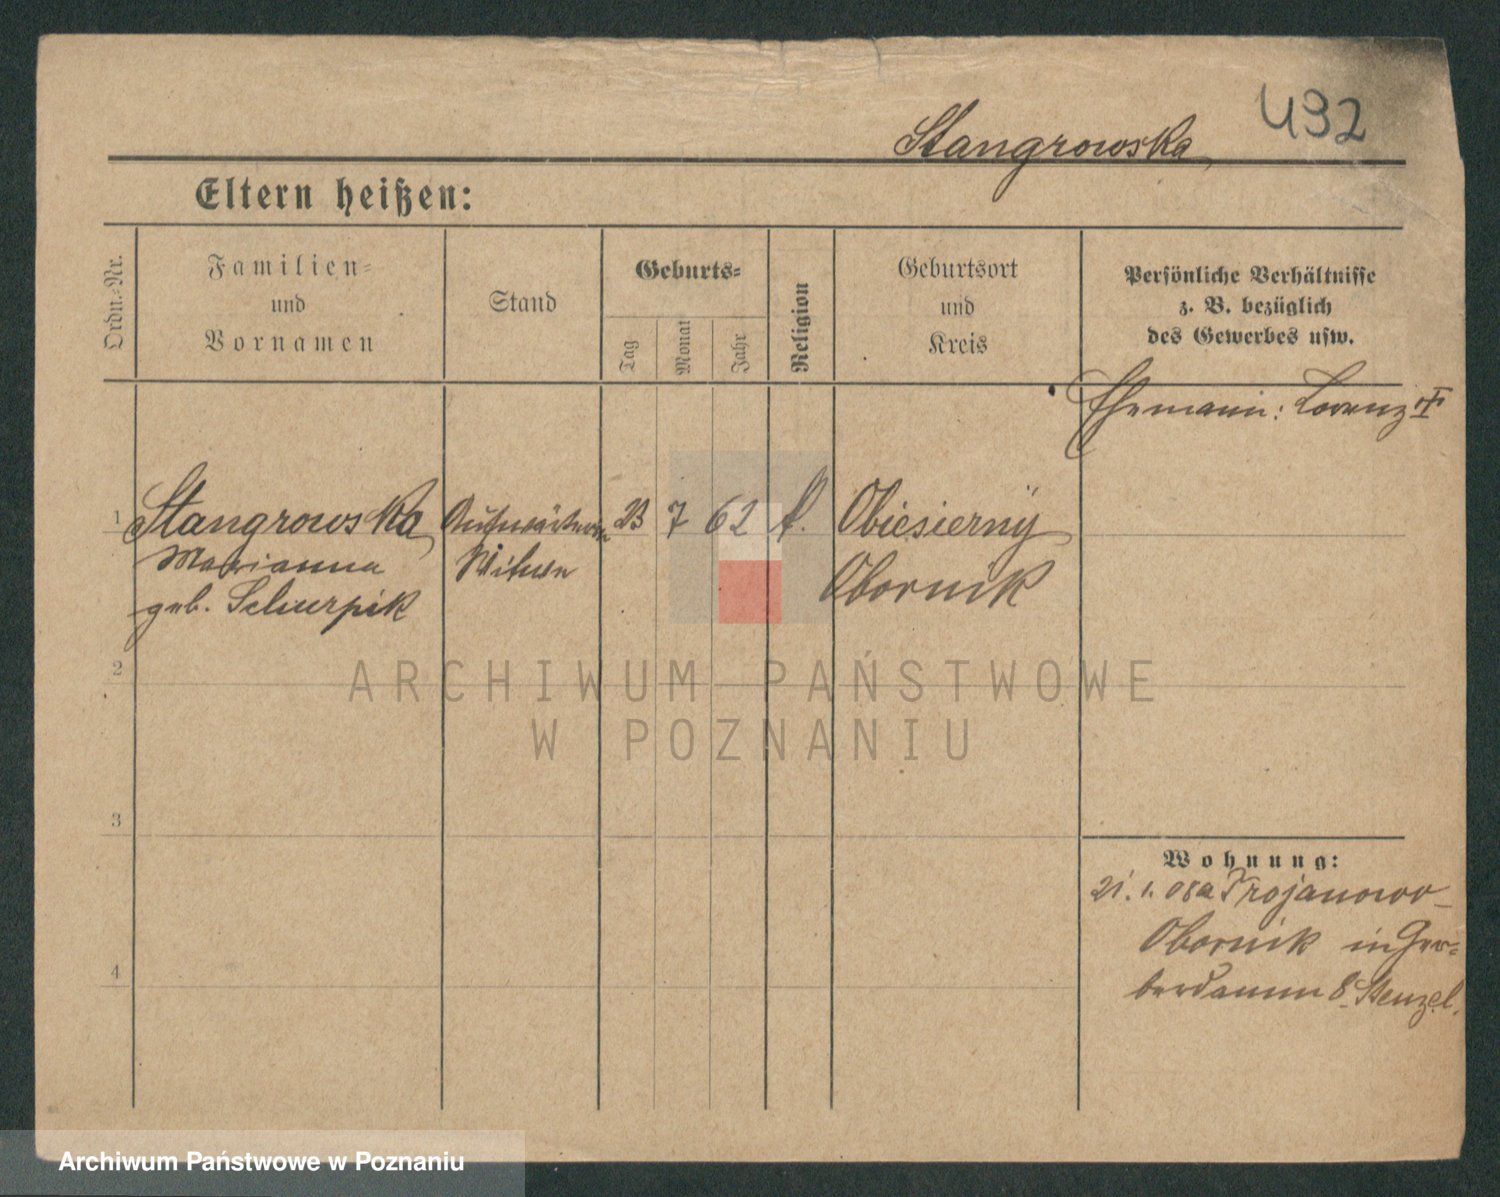 Stangrowska
432
Eltern heißen:
Ordn.-Nr.
Familien-
und
Vornamen
Stand
Geburts-
Tag
Monat
Jahr
Religion
Geburtsort
und
Kreis
Persönliche Verhältnisse
z. B. bezüglich
des Gewerbes usw.
Ehemann: Lorenz †
1 Stangrowska Aufwärterin 23 7 62 k. Obiesierny
Marianna Witwe Obornik
geb.
2
3
4
Wohnung:
21.1.08 a Trojanowo
Obornik in Ger-
berdamm 8. Stenzel.
ARCHIWUM PAŃSTWOWE
W POZNANIU
Archiwum Państwowe w Poznaniu